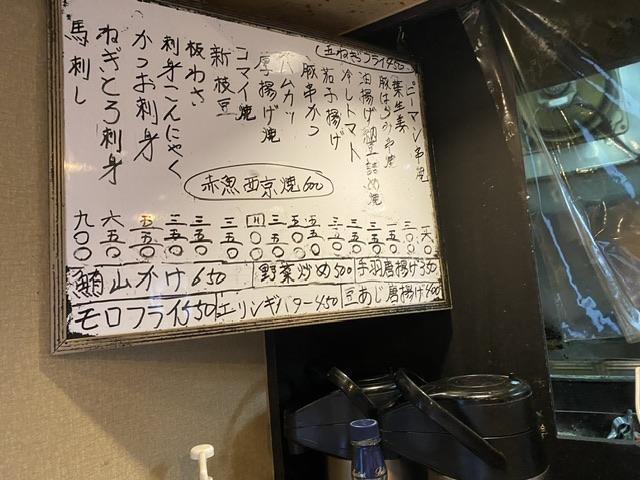 玉ねぎフライ450
ピーマン串焼
葉生姜
豚はらみ串焼
油揚げ納豆詰め焼
冷しトマト
茄子揚げ
豚串かつ
ハムカツ
厚揚げ焼
コマイ焼
新枝豆
板わさ
刺身こんにゃく
かつお刺身
ねぎとろ刺身
馬刺し
赤魚西京焼600
三五〇
三五〇
三五〇
六五〇
九〇〇
鮪山かけ650
野菜炒め500
手羽唐揚げ350
モロフライ550
エリンギバター450
豆あじ唐揚げ400